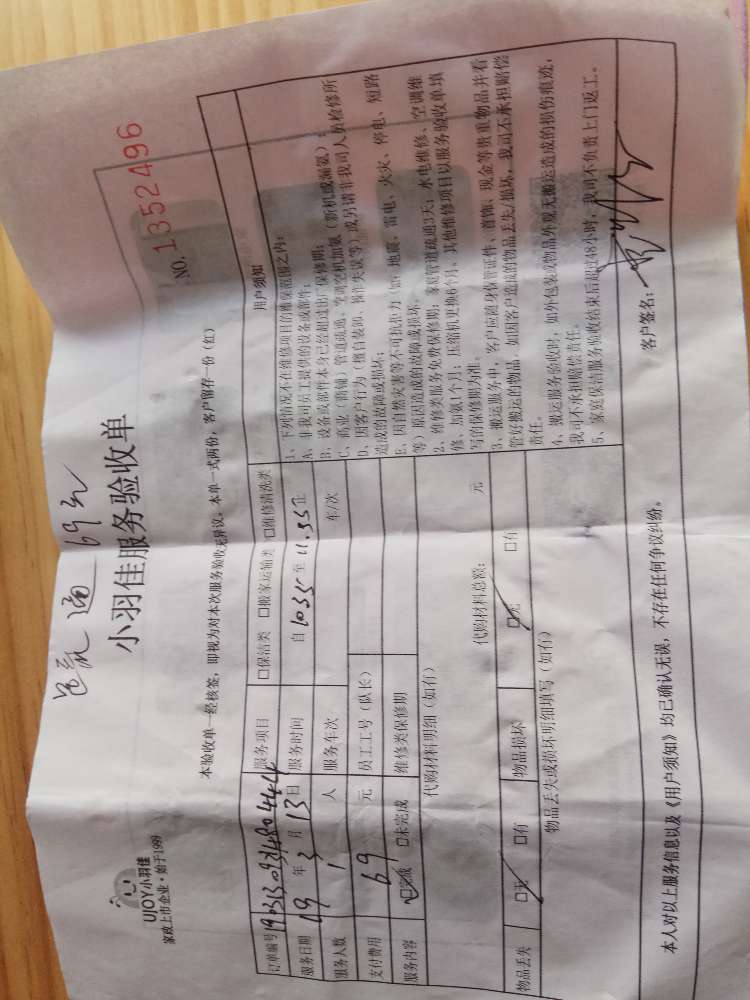 已 69元
UJOY小羽佳
家政上市企业·始于1999
小羽佳服务验收单
NO. 1352496
本验收单一经核签，即视为对本次服务验收无异议。本单一式两份，客户留存一份（红）
订单编号
服务项目 □保洁类 □搬家运输类 □维修清洗类
服务日期 19 年 3 月 13 日
服务时间 自 10.35 至 11.35 止
服务人数 1 人
服务车次 车/次
支付费用 69 元
员工工号（队长）
服务内容 □完成 □未完成
维修类保修期
代购材料明细（如有）
代购材料总额： 元
物品丢失 □无 □有
物品损坏 □无 □有
物品丢失或损坏明细填写（如有）
用户须知
1、下列情况不在维修项目的维保范围之内：
A、非我司员工提供的设备或部件；
B、设备或部件本身已经超过出厂保修期；
C、商业（商铺）管道疏通、空调空机加氨（新机或漏氨）；
D、因客户行为（擅自装卸、操作失误等）或另请非我司人员检修所
造成的故障或损坏；
E、因自然灾害等不可抗拒力（如：地震、雷电、火灾、停电、短路
等）原因造成的故障或损坏。
2、维修类服务免费保修期：家庭管道疏通3天；水电维修、空调维
修、加氨1个月；压缩机更换6个月，其他维修项目以服务验收单填
写的保修期为准。
3、搬运服务中，客户应随身保管证件、首饰、现金等贵重物品并看
管好搬运的物品，如因客户造成的物品丢失/损坏，我司不承担赔偿
责任。
4、搬运服务验收时，如外包装或物品外观无搬运造成的损伤痕迹，
我司不承担赔偿责任。
5、家庭保洁服务验收结束后超过48小时，我司不负责上门返工。
本人对以上服务信息以及《用户须知》均已确认无误，不存在任何争议纠纷。
客户签名：